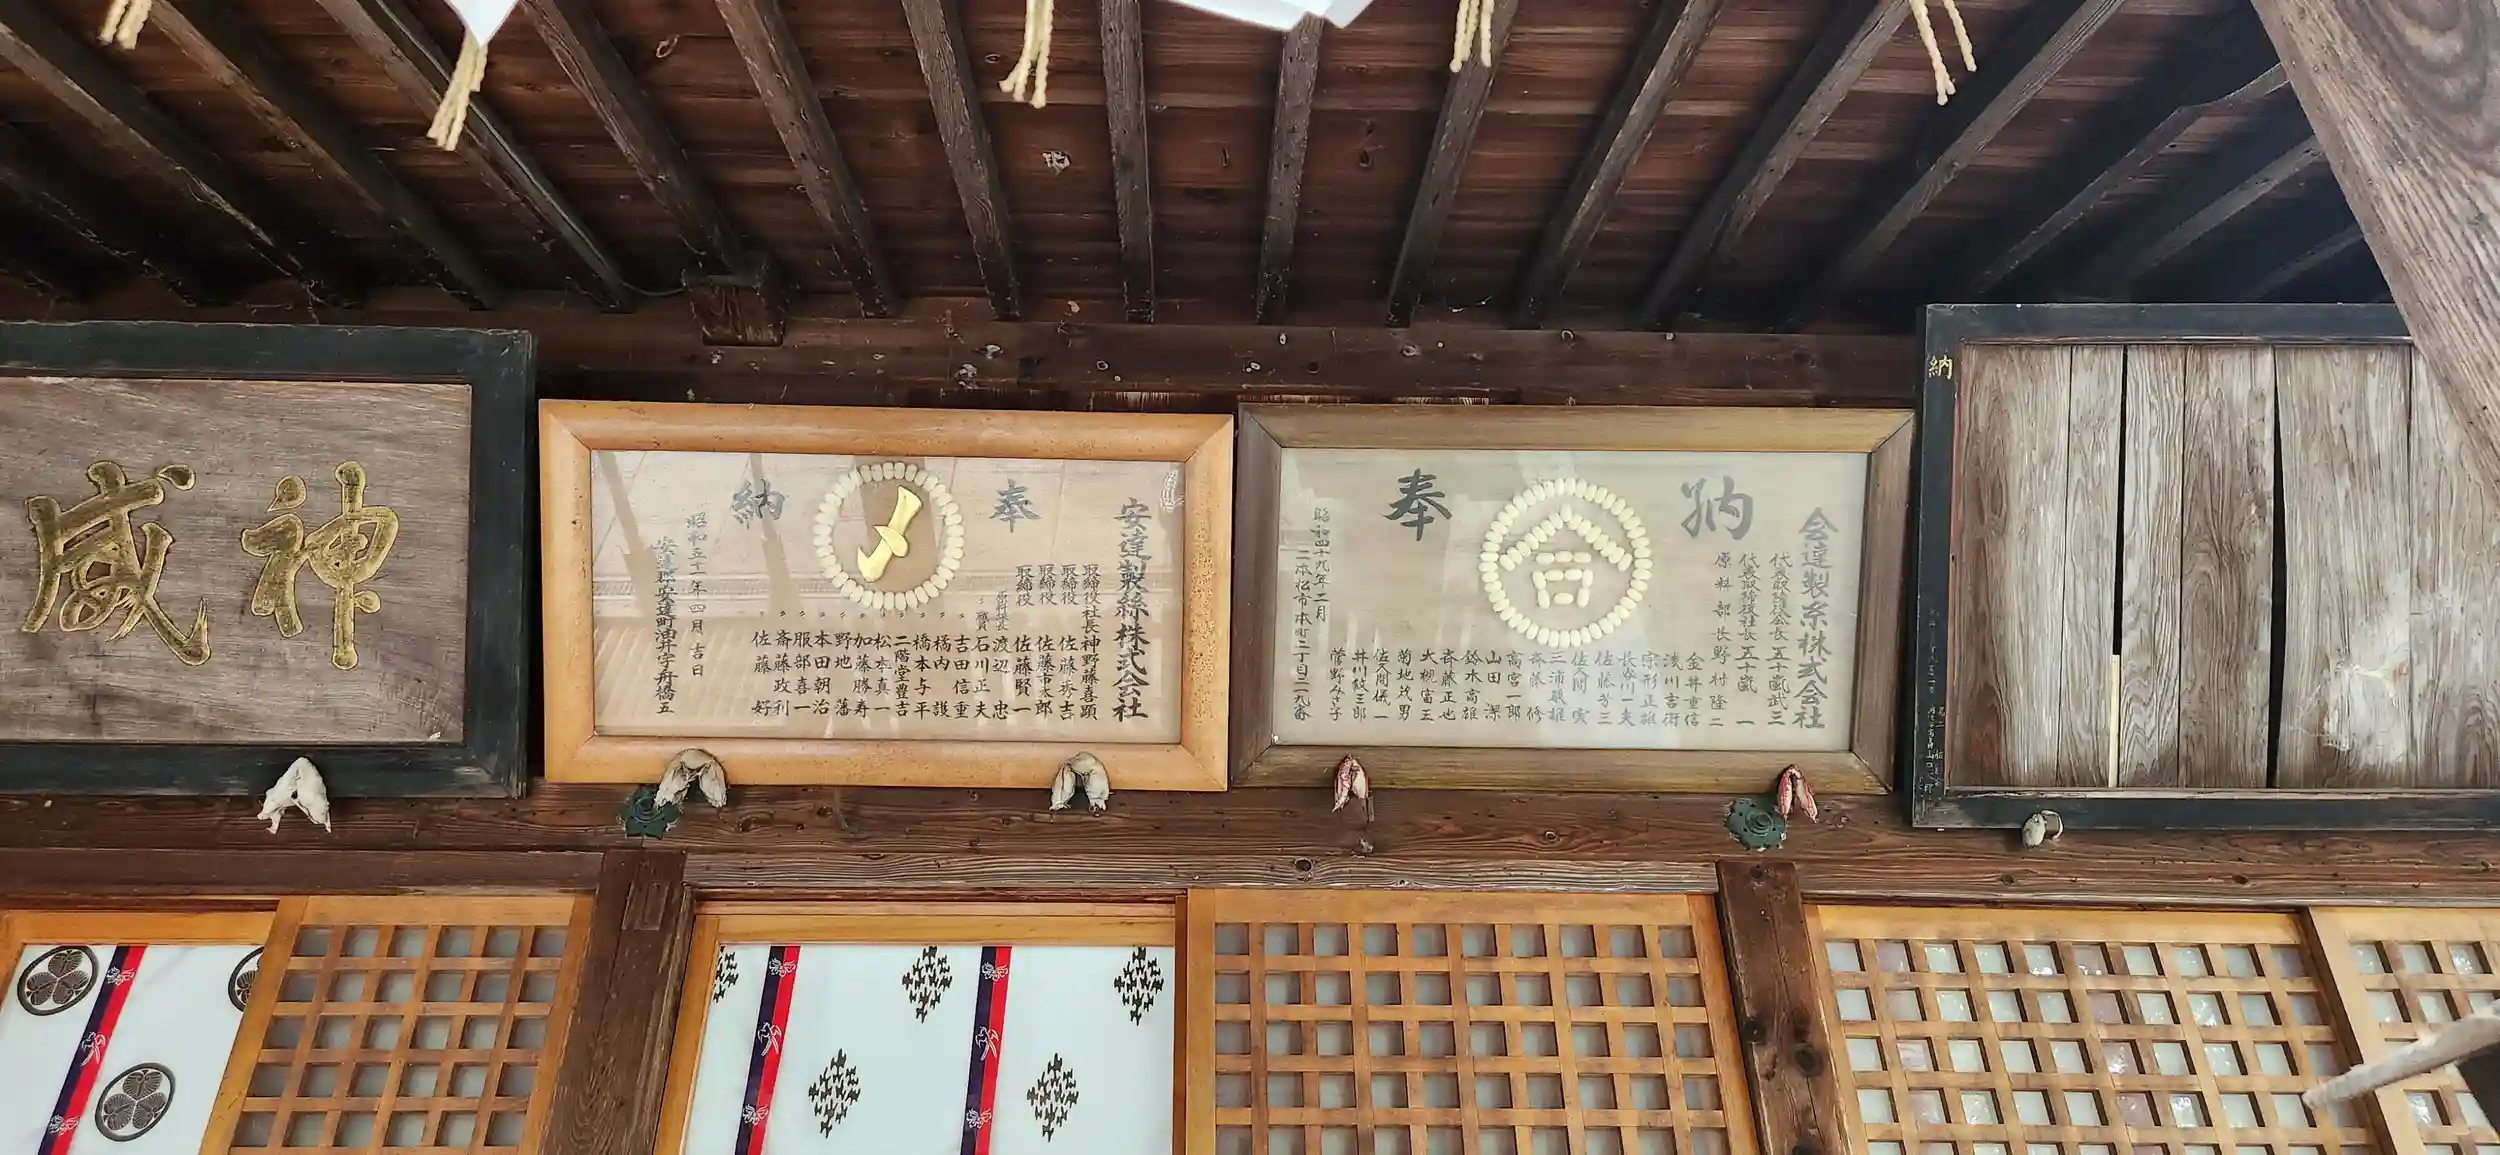 神威
安達製絲株式会社
奉納
取締役社長 神野藤喜顕
取締役 佐藤秀吉
取締役 佐藤市太郎
取締役 佐藤賢一
原料課長 渡辺忠
石川正夫
吉田信重
橋内護
橋本与平
二階堂豊吉
松本真一
加藤勝寿
野地藩
本田朝治
服部喜一
斎藤政利
佐藤好
昭和五十一年四月吉日
安達郡安達町油井字舟橋五
製糸株式会社
奉納
合
五十嵐武三
代表取締役社長 五十嵐一
原料部長 野村隆二
金井重信
浅川吉衛
宗形正雄
長谷川一夫
佐藤芳三
佐久間実
三浦敏雄
斉藤修
高宮一郎
山田潔
鈴木高雄
斉藤正也
大槻富王
菊地茂男
佐久間儀一
井川紋三郎
菅野みさ子
昭和四十九年二月
二本松市本町二丁目二九番
納